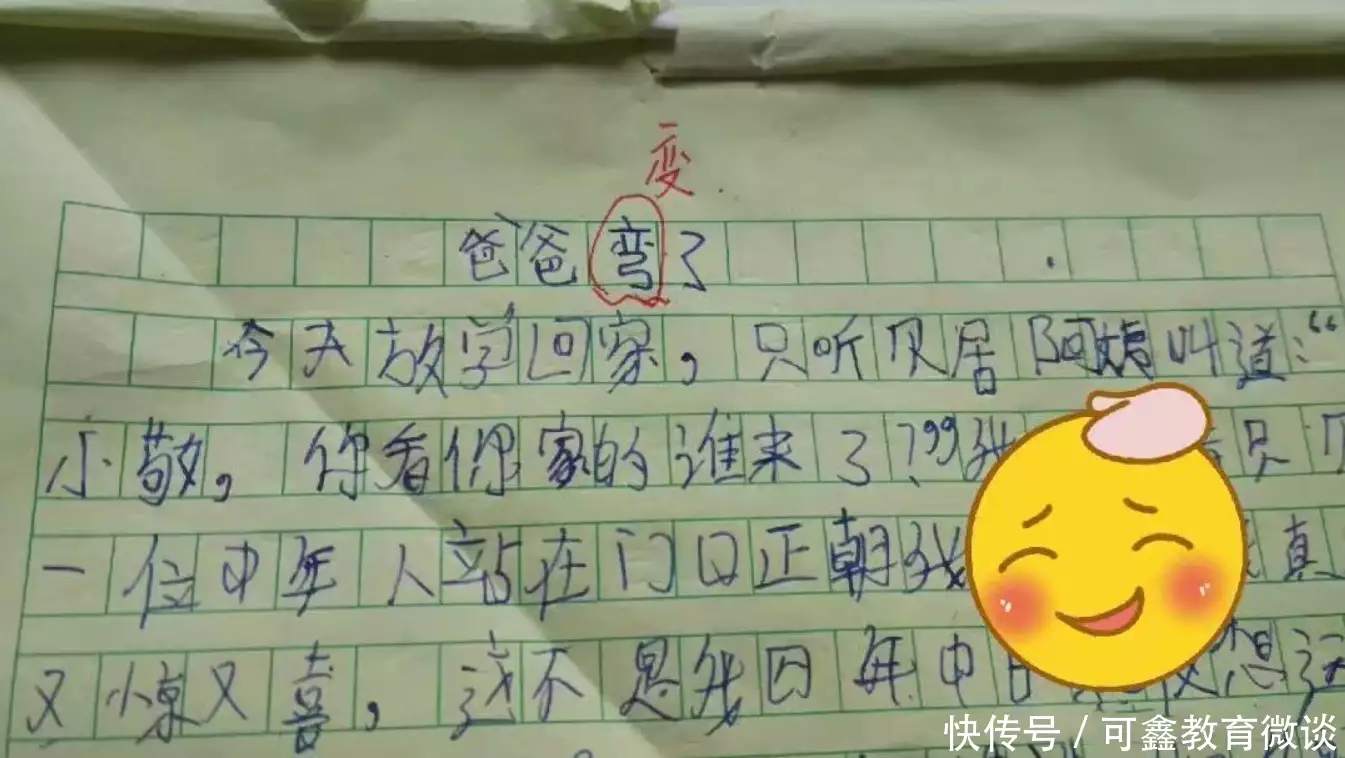 变
爸爸弯了
今天放学回家，只听阿姨叫道：“
小敬，你看你家的谁来了？”我只
一位中年人站在门口正朝我真
又惊又喜，这不是我年中想
快传号 / 可鑫教育微谈